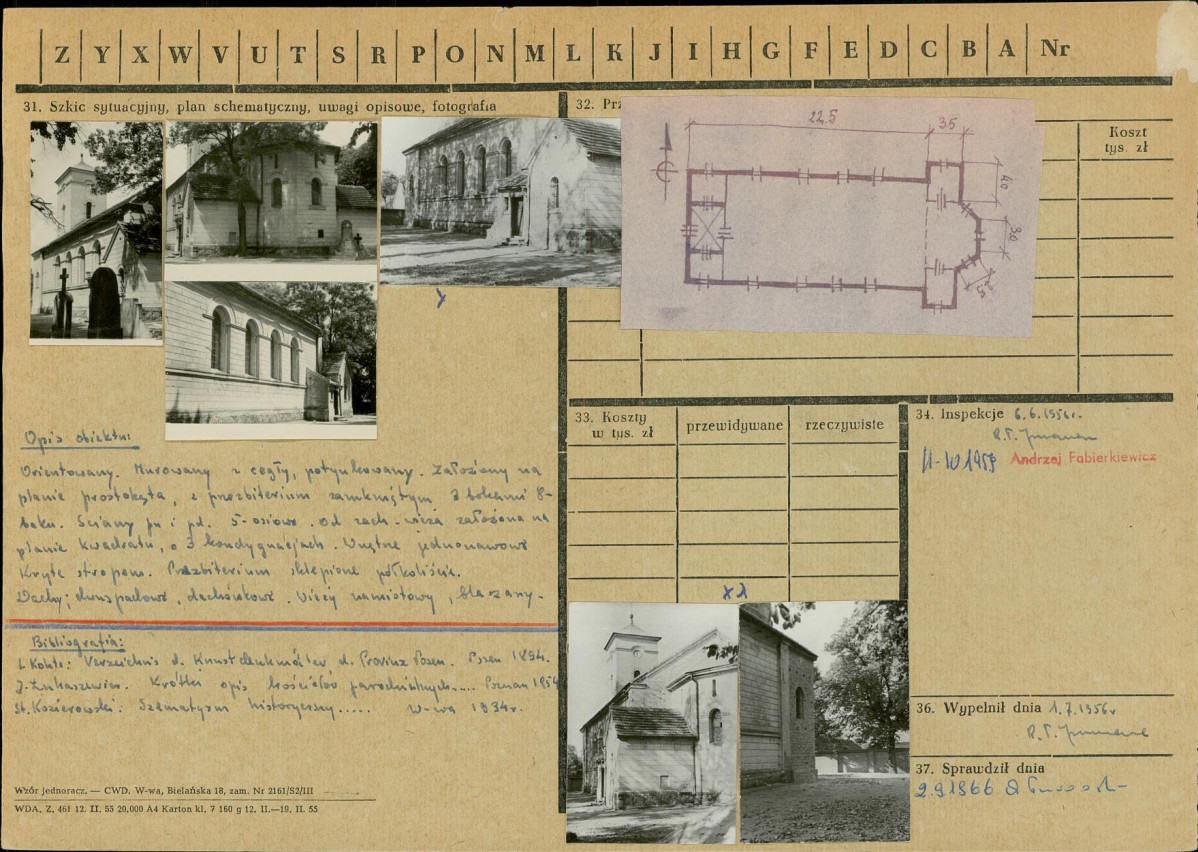 Z Y X W V U T S R P O N M L K J I H G F E D C B A Nr
31. Szkic sytuacyjny, plan schematyczny, uwagi opisowe, fotografia
32.
22.5
35
40
30
Koszt
tys. zł
Opis obiektu:
Orientowany. Murowany z cegły, potynkowany. Założony na
planie prostokąta, z prezbiterium zamkniętym 3 bokami 8-
boku. Ściany pn i pd. 5-osiowe. Od zach. wieża założona na
planie kwadratu, o 3 kondygnacjach. Wnętrze jednonawowe
Kryte stropem. Prezbiterium sklepione półkoliście.
Dachy; dwuspadowe, dachówkowe. Wieży namiotowy, blaszany.
Bibliografia:
Verzeichnis d. Kunstdenkmäler d. Provinz Posen. Posen 1894.
J. Łukaszewicz. Krótki opis kościołów parochialnych.... Poznań
St. Kozierowski: Szematyzm historyczny..... W-wa 1934r.
Wzór jednoracz. — CWD. W-wa, Bielańska 18, zam. Nr 2161/S2/III
WDA. Z. 461 12. II. 55 20,000 A4 Karton kl. 7 160 g 12. II.—19. II. 55
33. Koszty
w tys. zł
przewidywane
rzeczywiste
34. Inspekcje 6.6.1956r.
1959 Andrzej Fabierkiewicz
36. Wypełnił dnia 1.7.1956r
37. Sprawdził dnia
2.9.1966